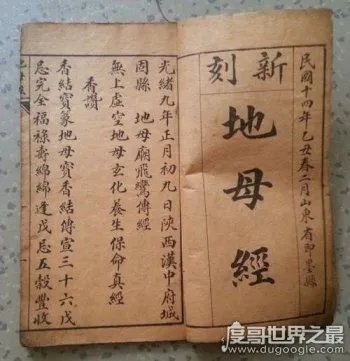 民國十四年乙丑春二月山東省即墨縣
新刻
地母經
光緒九年正月初九日陝西漢中府城
固縣 地母廟飛鸞傳經
無上虛空地母玄化養生保命真經
香讚
香結寶篆地母寶香結傳宣三十六戊
忌完全福祿壽綿綿逢戊忌五穀豐收
度哥世界之最
www.dugoogle.com